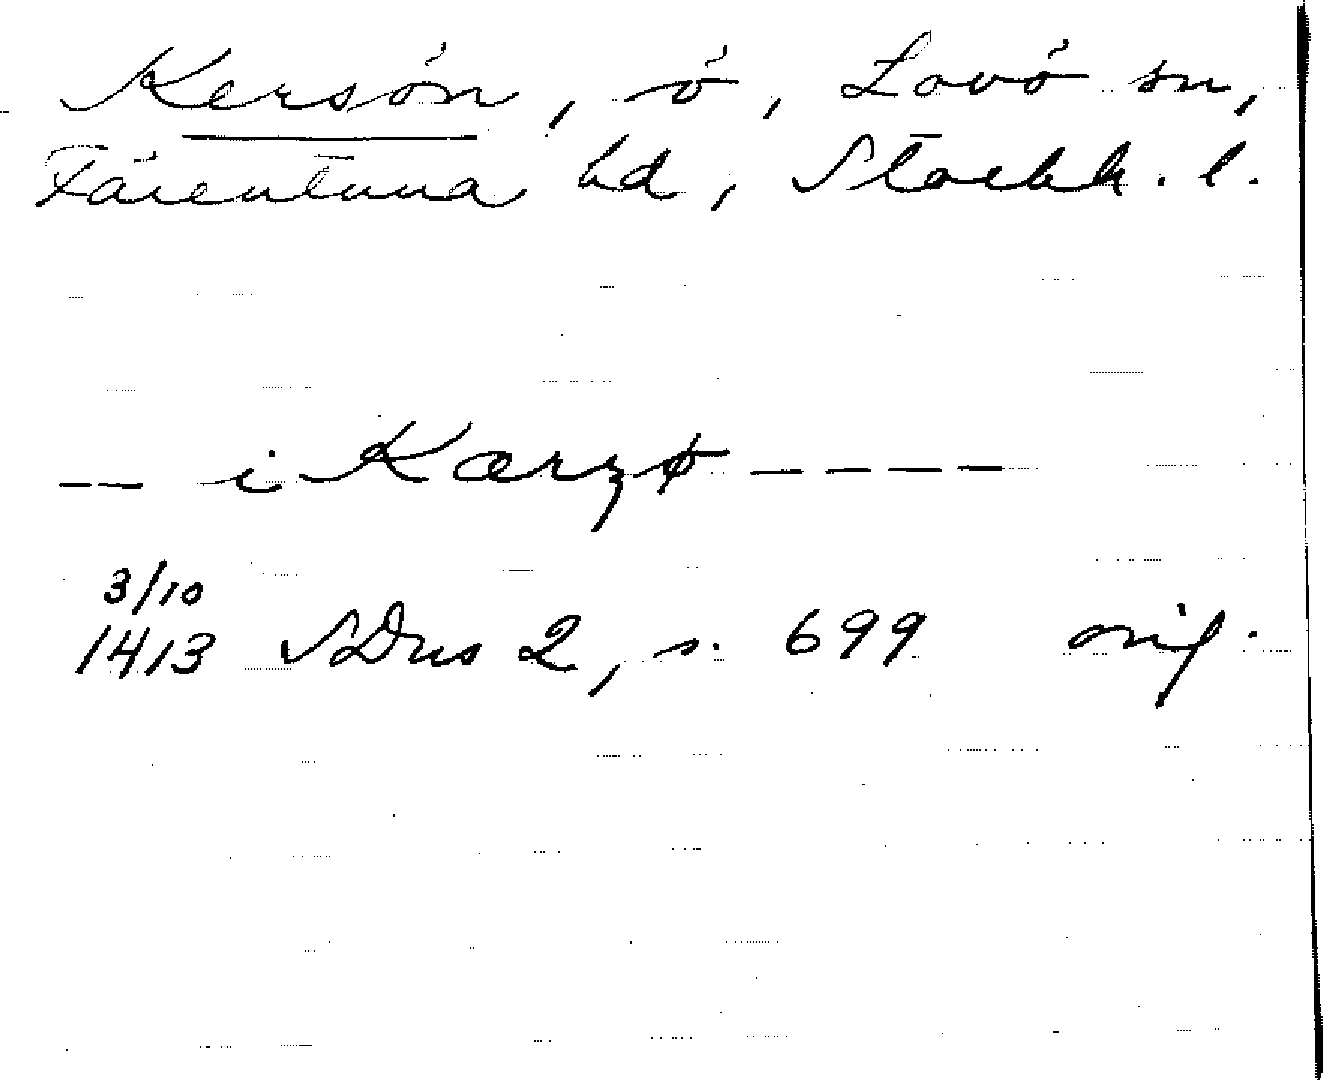 Kersön, ö, Lovö sn,
Färentuna hd, Stockh. l.
-- i Kærzø ----
3/10
1413 SDns 2, s. 699 orig.